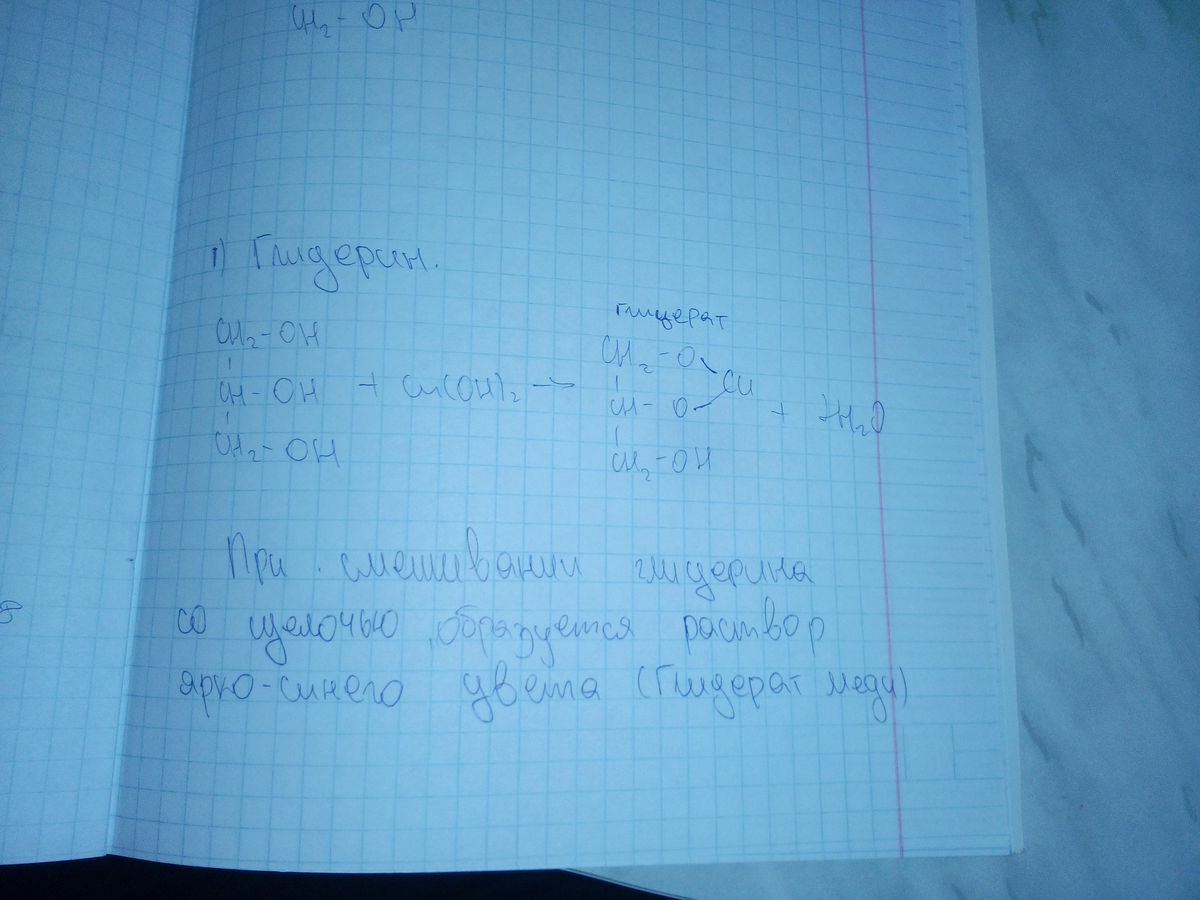 CH₂-OH
1) Глицерин.
глицерат
CH₂-OH
CH₂-O
CH-OH + Cu(OH)₂ →
CH-O
Cu + 2H₂O
CH₂-OH
CH₂-OH
При смешивании глицерина
со щелочью, образуется раствор
ярко-синего цвета (Глицерат меди)